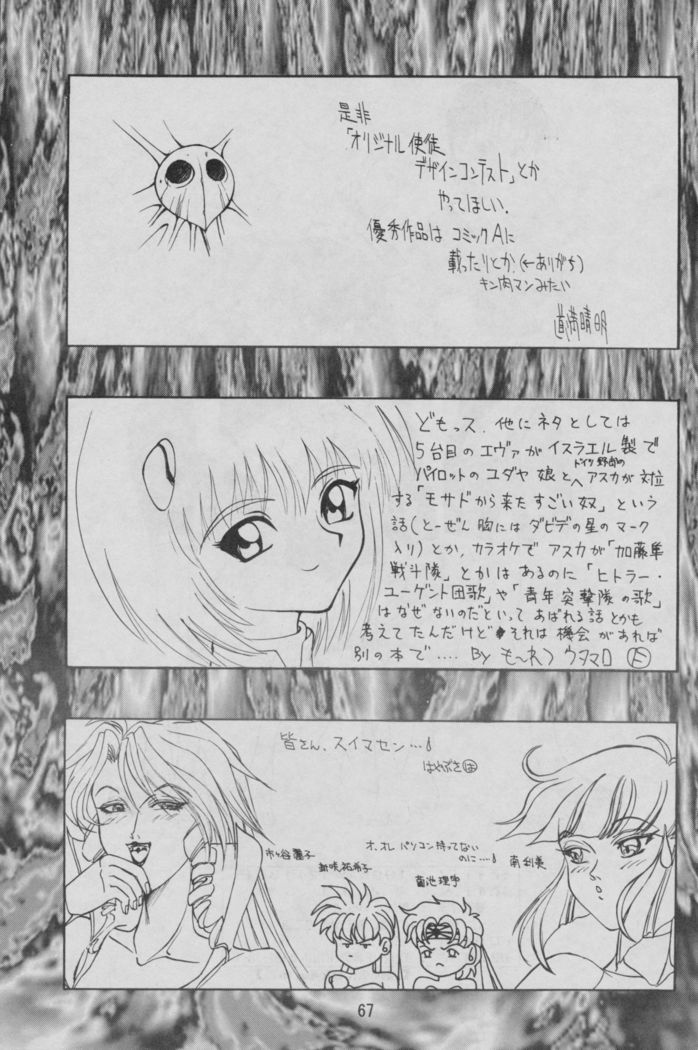 是非
「オリジナル使徒
デザインコンテスト」とか
やってほしい.
優秀作品は コミックAに
載ったりとか.(←ありがち)
キン肉マンみたい
道満晴明
どもっス.他にネタとしては
5台目のエヴァがイスラエル製で
ドイツ野郎の
パイロットのユダヤ娘とアスカが対立
する「モサドから来たすごい奴」という
話(とーぜん胸にはダビデの星のマーク
入り)とか,カラオケでアスカが「加藤隼
戦斗隊」とかはあるのに「ヒトラー・
ユーゲント団歌」や「青年突撃隊の歌」
はなぜないのだといってあばれる話とかも
考えてたんだけどそれは機会があれば
別の本で.... By もーれつウタマロ
皆さん、スイマセン…
はやぶさ
市ヶ谷麗子
新咲祐希子
オ、オレパソコン持ってない
のに…
菊池理宇
南利美
67